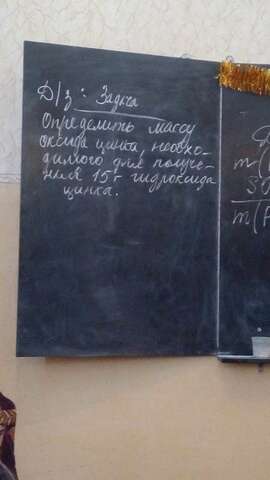 Д/з: Задача
Определить массу
оксида цинка, необхо-
димого для получе-
ния 15 г гидроксида
цинка.
m(
30
m(